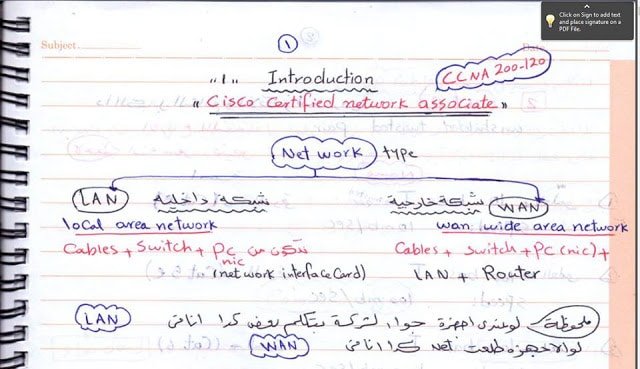 Click on Sign to add text
and place signature on a
PDF File.
Subject
Date
1
"1" Introduction
CCNA 200-120
"Cisco Certified network associate"
Network type
LAN شبكة داخلية شبكة خارجية WAN
local area network wan wide area network
Cables + Switch + PC تتكون من Cables + switch + PC (nic) +
nic (network interface Card) LAN + Router
ملحوظة لو عندى اجهزة جوا الشركة بتتكلم بعض كدا انا فى LAN
لو الاجهزه طلعت net كدا انا فى WAN